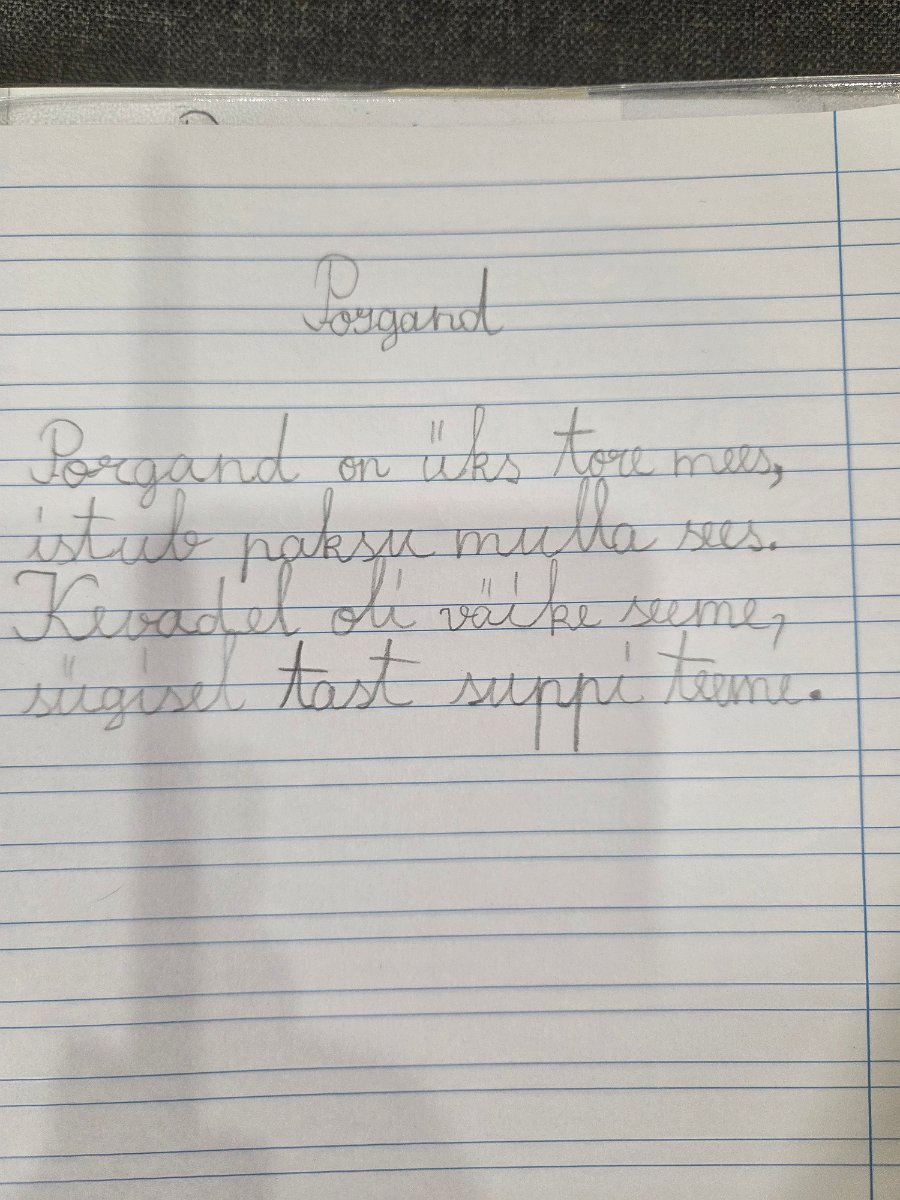 Porgand
Porgand on üks tore mees,
istub paksu mulla sees.
Kevadel oli väike seeme,
sügisel tast suppi teeme.